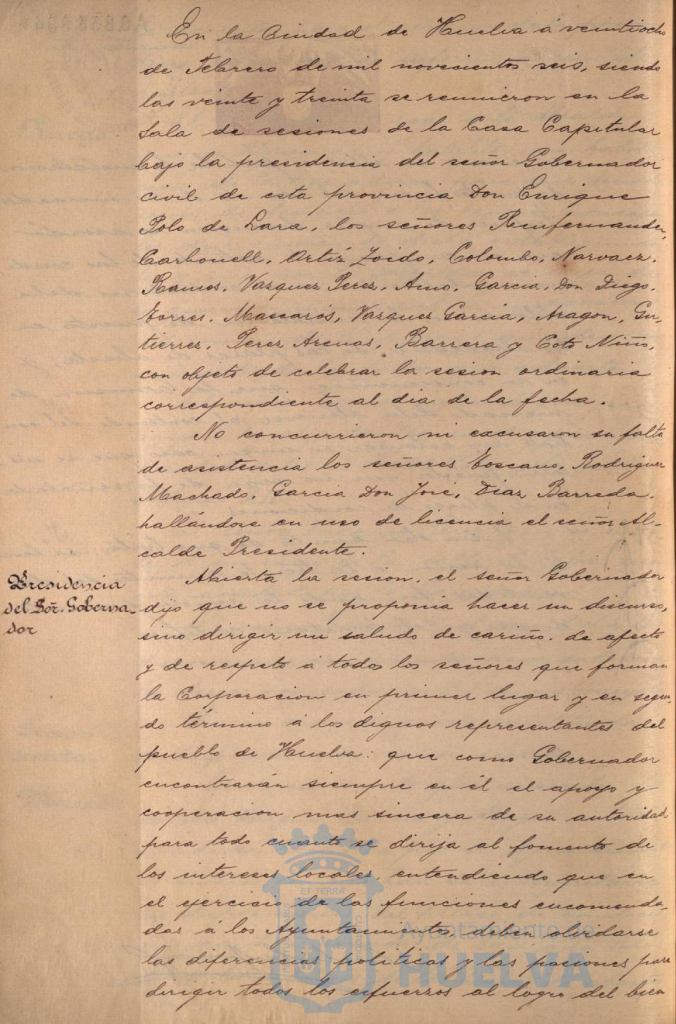 En la Ciudad de Huelva á veintiocho
de Febrero de mil novecientos seis, siendo
las veinte y treinta se reunieron en la
Sala de sesiones de la Casa Capitular
bajo la presidencia del señor Gobernador
civil de esta provincia Don Enrique
Polo de Lara, los señores
Carbonell, Ortiz Zoido, Colombo, Narvaez,
Ramos, Vazquez Perez, Amo, Garcia Don Diego,
Torres, Mascarós, Vazquez Garcia, Aragon, Gu-
tierrez, Perez Arenas, Barrera y Coto Niño,
con objeto de celebrar la sesion ordinaria
correspondiente al dia de la fecha.
No concurrieron ni excusaron su falta
de asistencia los señores Toscano, Rodriguez
Machado, Garcia Don José, Diaz Barreda,
hallándose en uso de licencia el señor Al-
calde Presidente.
Presidencia
del Sor. Goberna-
dor
Abierta la sesion, el señor Gobernador
dijo que no se proponia hacer un discurso,
sino dirigir un saludo de cariño, de afecto
y de respeto á todos los señores que forman
la Corporacion en primer lugar y en segun-
do término á los dignos representantes del
pueblo de Huelva: que como Gobernador
encontrarán siempre en él el apoyo y
cooperacion mas sincera de su autoridad
para todo cuanto se dirija al fomento de
los intereses locales, entendiendo que en
el ejercicio de las funciones encomenda-
das á los Ayuntamientos, deben olvidarse
las diferencias politicas y las pasiones para
dirigir todos los esfuerzos al logro del bien
Ayuntamiento de
HUELVA